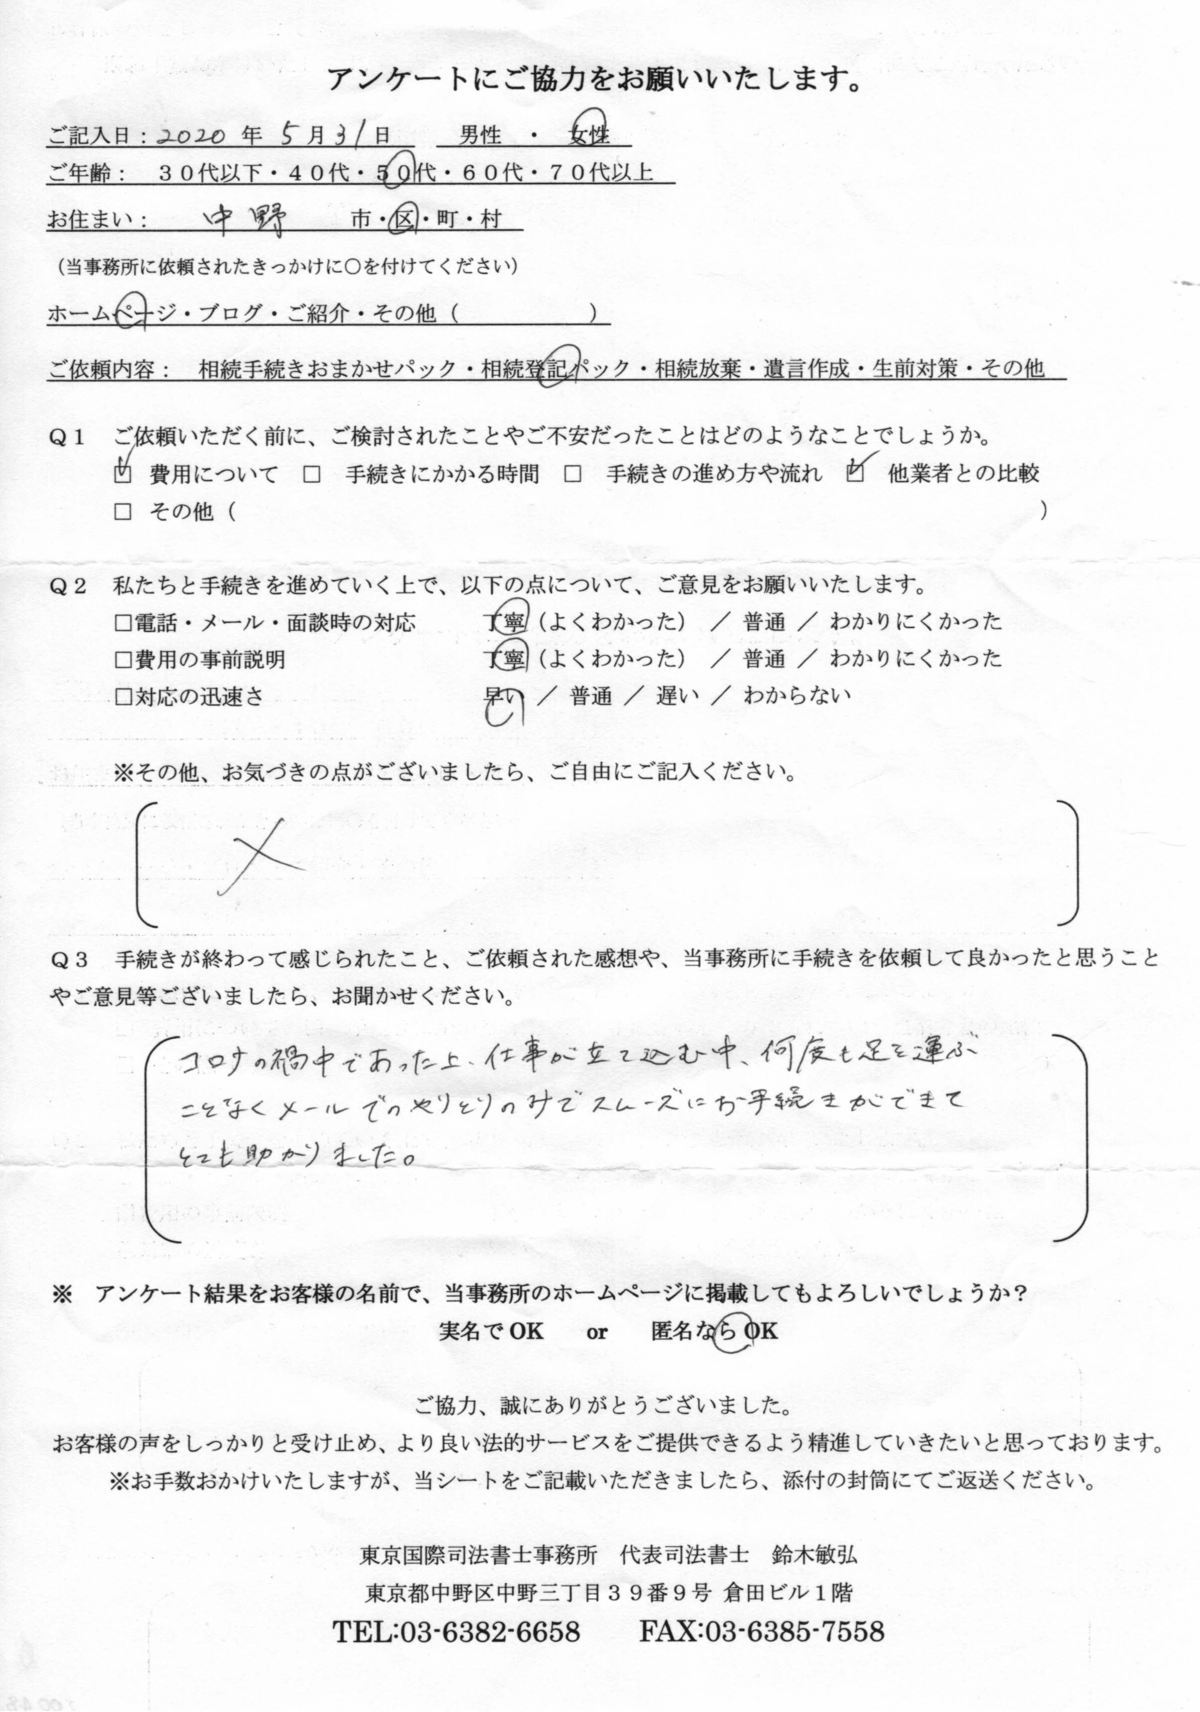 アンケートにご協力をお願いいたします。
ご記入日：2020 年 5 月 31 日　男性　・　女性
ご年齢：　３０代以下・４０代・５０代・６０代・７０代以上
お住まい：　中野　市・区・町・村
（当事務所に依頼されたきっかけに○を付けてください）
ホームページ・ブログ・ご紹介・その他（　　　　　　）
ご依頼内容：　相続手続きおまかせパック・相続登記パック・相続放棄・遺言作成・生前対策・その他
Ｑ１　ご依頼いただく前に、ご検討されたことやご不安だったことはどのようなことでしょうか。
☑ 費用について　□　手続きにかかる時間　□　手続きの進め方や流れ　☑　他業者との比較
□ その他（　　　　　　）
Ｑ２　私たちと手続きを進めていく上で、以下の点について、ご意見をお願いいたします。
□電話・メール・面談時の対応　丁寧（よくわかった）　／　普通　／　わかりにくかった
□費用の事前説明　丁寧（よくわかった）　／　普通　／　わかりにくかった
□対応の迅速さ　早い　／　普通　／　遅い　／　わからない
※その他、お気づきの点がございましたら、ご自由にご記入ください。
Ｑ３　手続きが終わって感じられたこと、ご依頼された感想や、当事務所に手続きを依頼して良かったと思うこと
やご意見等ございましたら、お聞かせください。
コロナの禍中であった上、仕事が立て込む中、何度も足を運ぶ
ことなくメールでのやりとりのみでスムーズにお手続きができて
とても助かりました。
※　アンケート結果をお客様の名前で、当事務所のホームページに掲載してもよろしいでしょうか？
実名で OK　or　匿名なら OK
ご協力、誠にありがとうございました。
お客様の声をしっかりと受け止め、より良い法的サービスをご提供できるよう精進していきたいと思っております。
※お手数おかけいたしますが、当シートをご記載いただきましたら、添付の封筒にてご返送ください。
東京国際司法書士事務所　代表司法書士　鈴木敏弘
東京都中野区中野三丁目３９番９号 倉田ビル１階
TEL:03-6382-6658　FAX:03-6385-7558